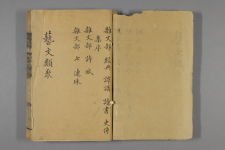 雜文部 經典 談講 讀書 史傳
集序
雜文部 詩 賦
雜文部 七 連珠
藝文類聚